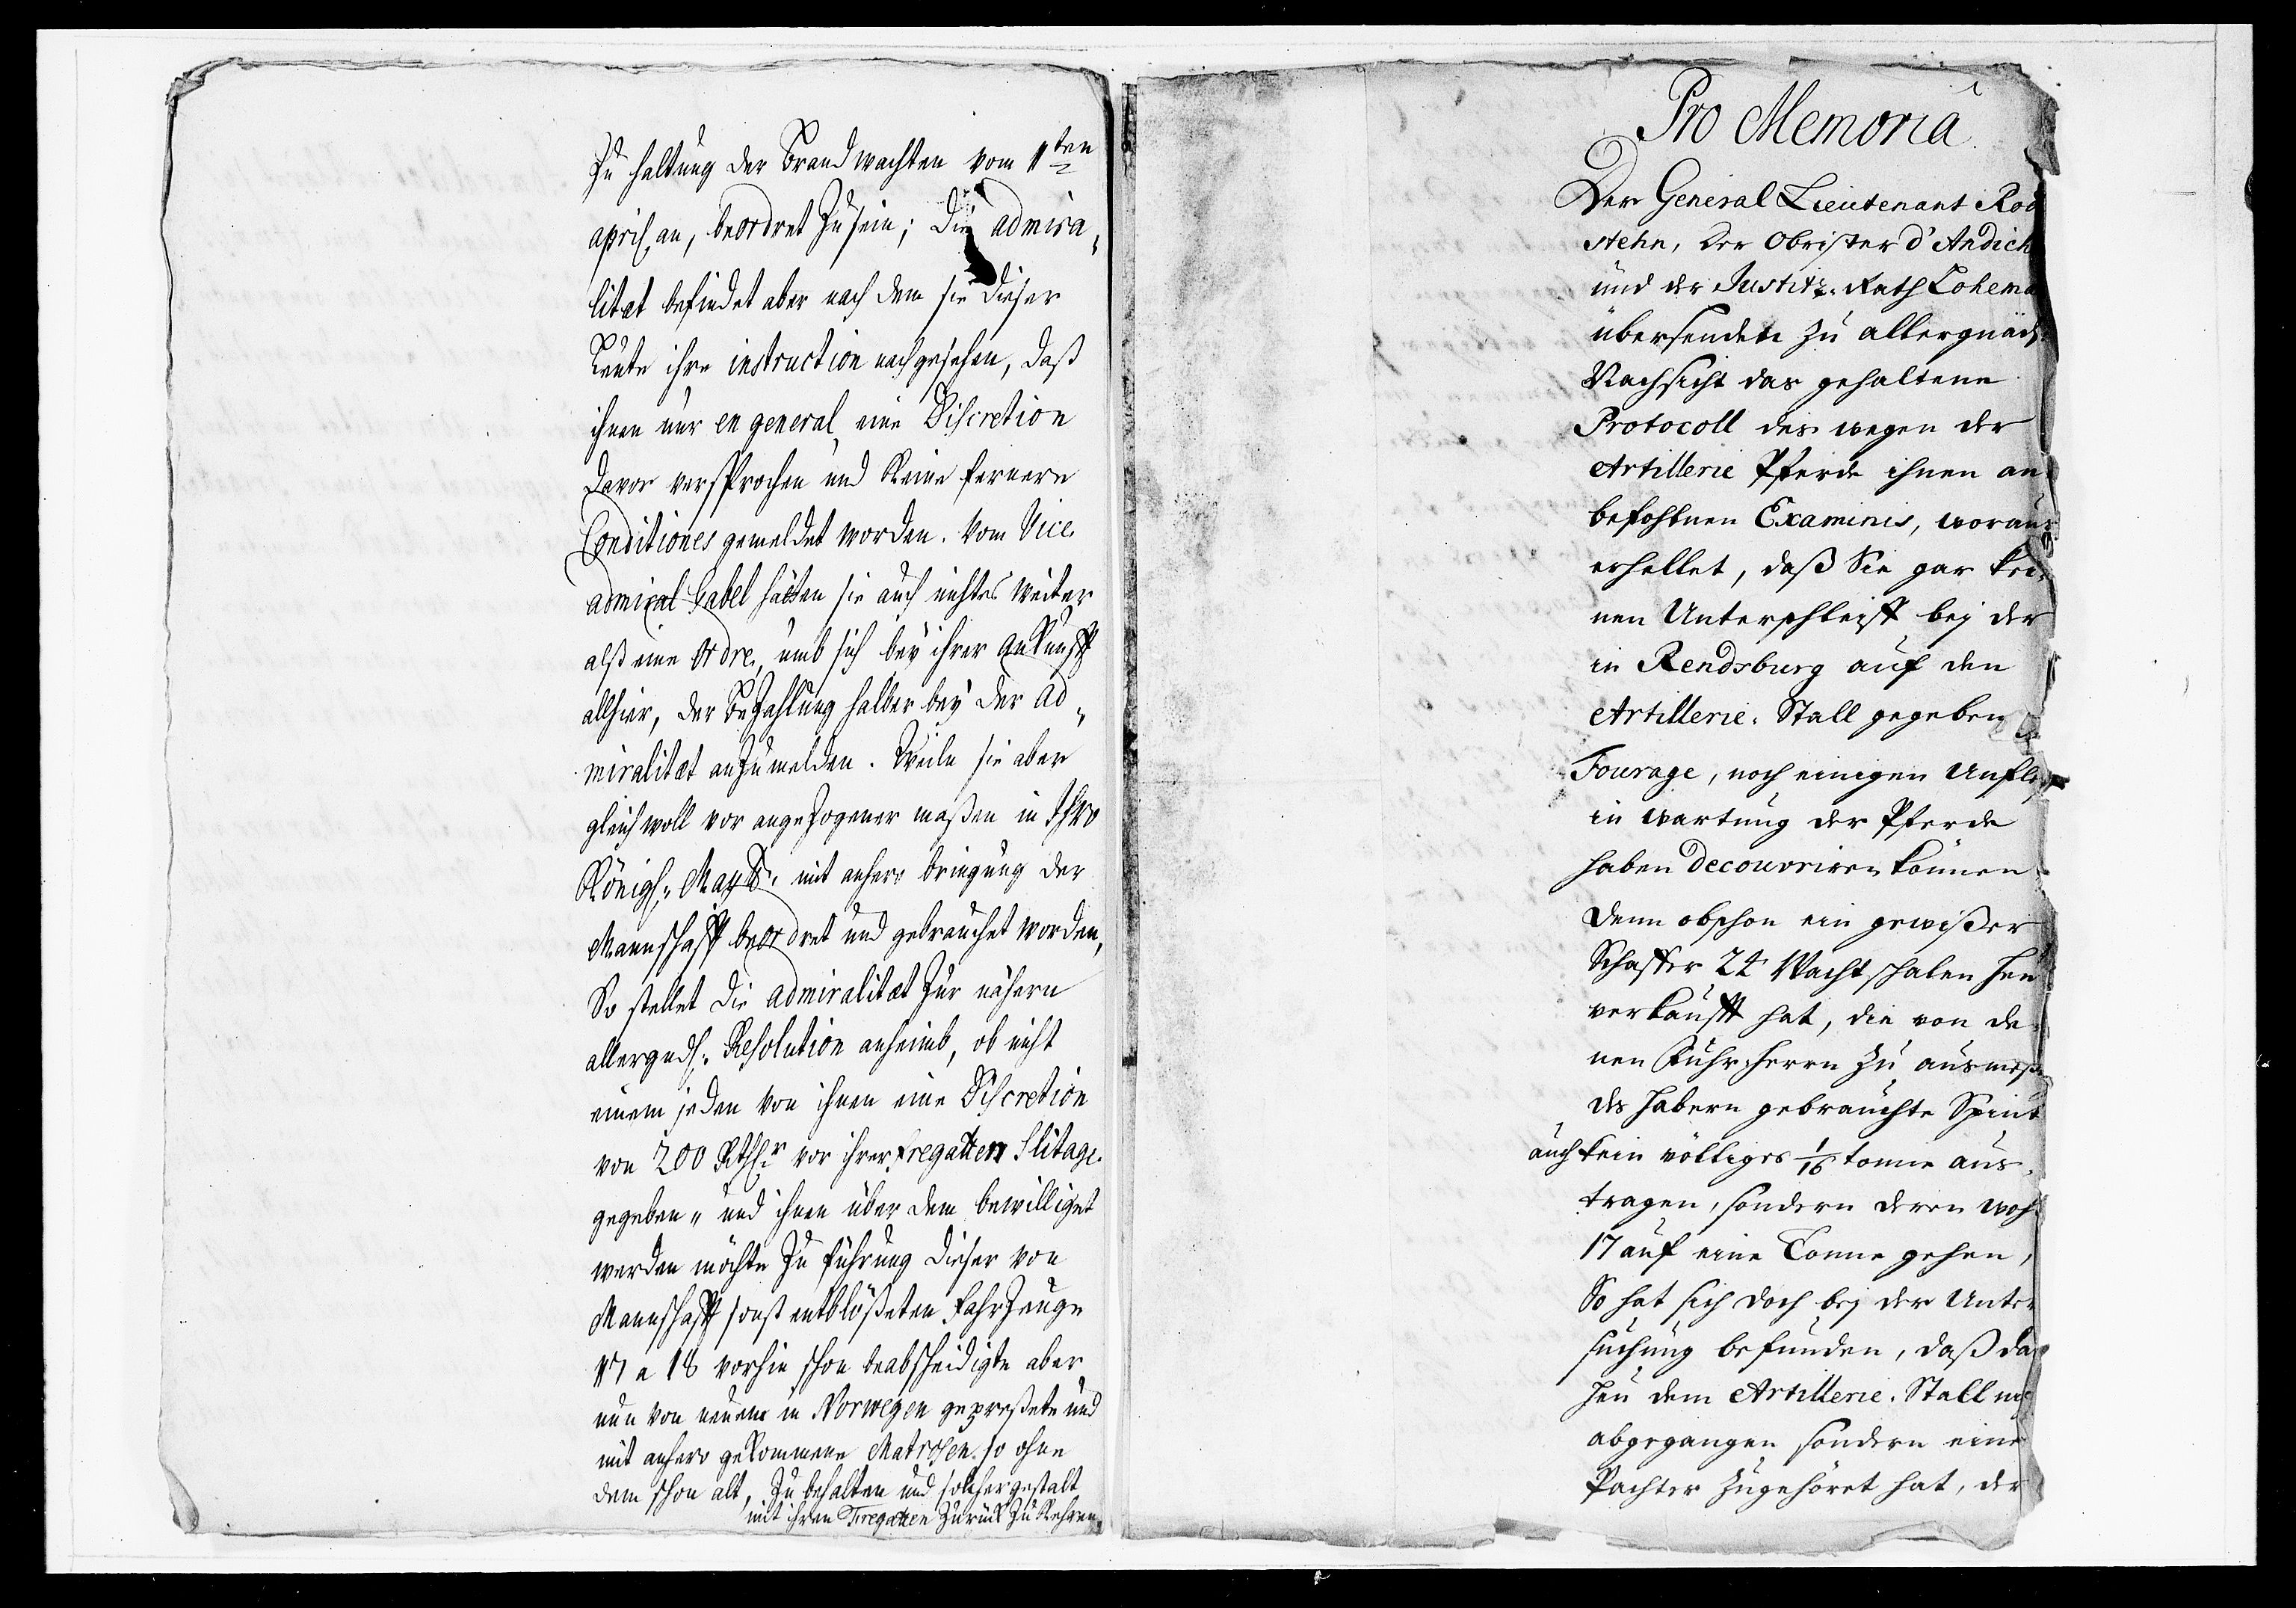 Zu haltung der Brandwachten vom 1ten
april an, beordret zu sein; Die admira„
litæt befindet aber nach dem sie dieser
Leute ihre instruction nachgesehen, daß
ihnen nur en general eine Discretion
davor versprochen und keine fernere
Conditiones gemeldet worden. Vom Vice
admiral Gabel hätten sie auch nichtes weiter
alß eine Ordre, umb sich beÿ ihrer ankunfft
allhier, der bezahlung halber beÿ der ad„
miralitæt anzumelden. Weile sie aber
gleichwoll vor angezogener maßen in Ihro
Königl. Maytt. mit anhero bringung der
Mannschafft beordret und gebrauchet worden,
So stellet die admiralitæt zur nähern
allergndl. Resolution anheimb, ob nicht
einem jeden von ihnen eine Discretion
von 200 Rthlr vor ihrer fregatten Slitage
gegeben„ und ihnen über dem bewilliget
werden möchte zu führung dieser von
Mannschafft sonst entblößeten fahrzeuge
17 a 18 vorhin schon beabscheidigte aber
nun von neuem in Norwegen gepreßete und
mit anhero gekommene Matrosen so ohne
dem schon alt, zu behalten und solchergestalt
mit ihren Fregatten zurück zu kehren.
Pro Memoriâ.
Der General Lieutenant
stehn, der Obrister d'Andich
und der Justitz-Rath Lohema
übersenden zu allergnäd
Nachsicht das gehaltene
Protocoll des wegen der
Artillerie Pferde ihnen an
befohlnen Examinis, woraus
erhellet, daß Sie gar kei-
nen Unterschleiff bej der
in Rendsburg auf den
Artillerie-Stall gegeben
Fourage, noch einigen Unfl
in wartung der Pferde
haben decouvriren können
denn obschon ein gewißer
Schaffer 24 Wachtschalen Heu
verkaufft hat, die von de-
nen Fuhrherrn zu ausmeße
des Habern gebrauchte Spint
auch kein völliges 1/16 tonne aus-
tragen, sondern deren woh
17 auf eine Tonne gehen,
So hat sich doch bej der Unter
suchung befunden, daß das
Heu dem Artillerie-Stall
abgegangen sondern eine
Pachter zugehöret hat, der